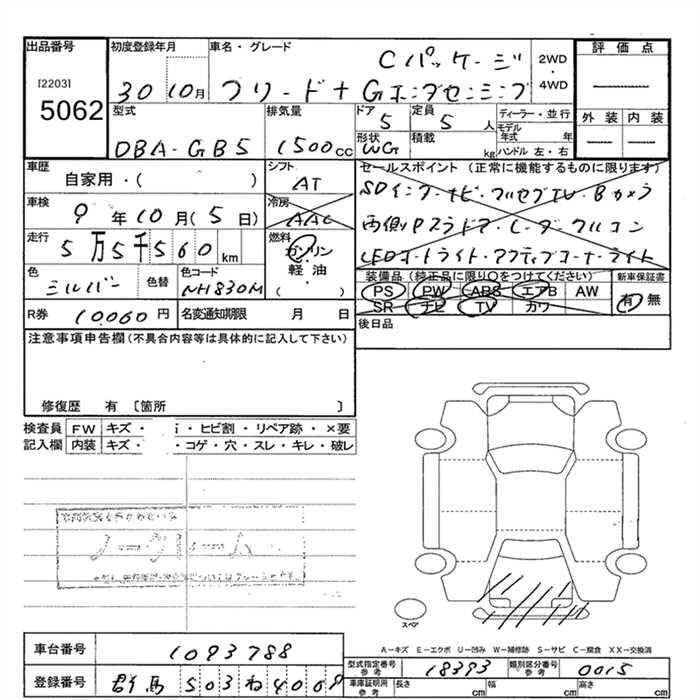 出品番号
[2203]
5062
初度登録年月
30 10月
車名・グレード
Cパッケージ
フリード+Gホンダセンシング
2WD
・
4WD
評価点
外装 内装
型式
DBA-GB5
排気量
1500cc
ドア
5
定員
5人
形状
WG
積載
kg
ディーラー・並行
モデル年式 年
ハンドル 左・右
車歴
自家用・( )
シフト
AT
セールスポイント(正常に機能するものに限ります)
SDインターナビ・フルセグTV・Bカメラ
両側Pスラドア・レーダークルコン
LEDオートライト・アクティブコーナーライト
車検
9年10月(5日)
冷房
AAC
走行
5万5千560km
燃料
ガソリン
軽油
( ・ )
色
シルバー
色替
色コード
NH830M
装備品(純正品に限り○をつけてください)
PS PW ABS エアB AW
SR ナビ TV カワ
新車保証書
有・無
R券 10.060円
名変通知期限 月 日
後日品
注意事項申告欄(不具合内容等は具体的に記入して下さい)
修復歴 有 〔箇所 〕
検査員 FW キズ・ ・ヒビ割・リペア跡・×要
記入欄 内装 キズ・ ・コゲ・穴・スレ・キレ・破レ
ノークレーム
スペア
A-キズ E-エクボ U-凹み W-補修跡 S-サビ C-腐食 XX-交換済
車台番号 1093788
登録番号 群馬503ね4069
型式指定番号参考 18393
類別区分番号参考 0015
車庫証明用参考 長さ cm 幅 cm 高さ cm